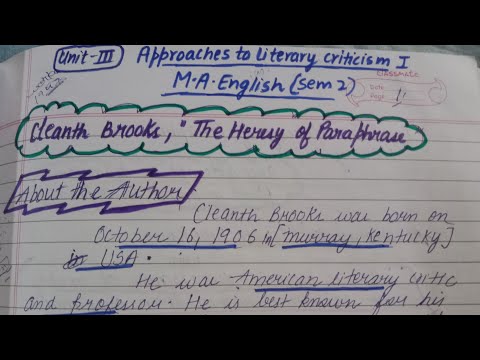 Unit-III Approaches to Literary criticism I
M.A. English (sem 2)
classmate
Date
Page 11
Cleanth Brooks, "The Heresy of Paraphrase
About the Author
Cleanth Brooks was born on
October 16, 1906 in [Murray, Kentucky]
USA.
He was American literary critic
and professor. He is best known for his